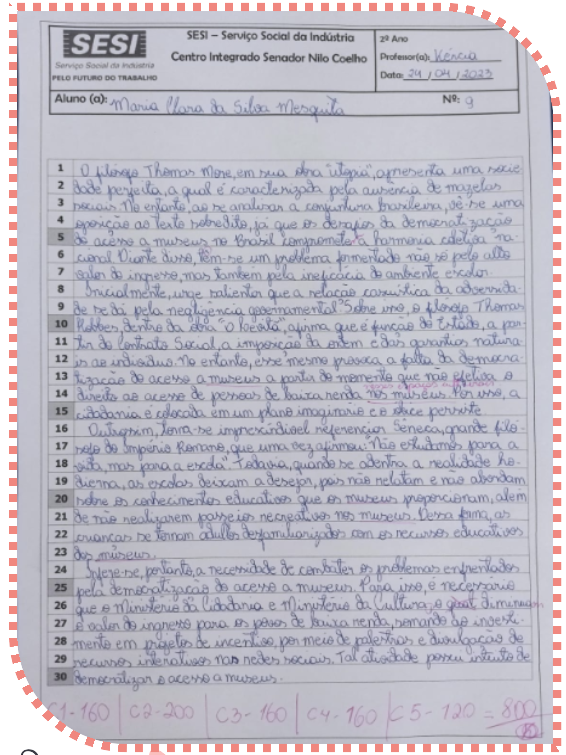 SESI
Serviço Social da Indústria
PELO FUTURO DO TRABALHO
SESI – Serviço Social da Indústria
Centro Integrado Senador Nilo Coelho
2º Ano
Professor(a): Kércia
Data: 24 / 04 / 2023
Aluno (a): Maria Clara da Silva Mesquita
Nº: 9
1 O filósofo Thomas More, em sua obra "utopia", apresenta uma socie
2 dade perfeita, a qual é caracterizada pela ausência de mazelas
3 sociais. No entanto, ao se analisar a conjuntura brasileira, vê-se uma
4 oposição ao texto sobredito, já que os desafios da democratização
5 do acesso a museus no Brasil compromete a harmonia coletiva na-
6 cional. Diante disso, têm-se um problema fomentado não só pelo alto
7 valor do ingresso, mas também pela ineficácia do ambiente escolar.
8 Inicialmente, urge salientar que a relação casuística da adversida-
9 de se dá pela negligência governamental. Sobre isso, o filósofo Thomas
10 Hobbes, dentro da obra "O Leviatã", afirma que é função do Estado, a par-
11 tir do Contrato Social, a imposição da ordem e das garantias natura-
12 is ao indivíduo. No entanto, esse mesmo provoca a falta da democra-
13 tização do acesso a museus a partir do momento que não efetiva o
14 direito ao acesso de pessoas de baixa renda nos museus. Por isso, a
15 cidadania é colocada em um plano imaginário e o óbice persiste
16 Outrossim, torna-se imprescindível referenciar Sêneca, grande filó-
17 sofo do Império Romano, que uma vez afirmou: "Não estudamos para a
18 vida, mas para a escola". Todavia, quando se adentra a realidade ho-
19 dierna, as escolas deixam a desejar, pois não relatam e não abordam
20 sobre os conhecimentos educativos que os museus proporcionam, além
21 de não realizarem passeios recreativos nos museus. Dessa forma, as
22 crianças se tornam adultos desfamiliarizados com os recursos educativos
23 dos museus.
24 Infere-se, portanto, a necessidade de combater os problemas enfrentados
25 pela democratização do acesso a museus. Para isso, é necessário
26 que o Ministério da Cidadania e Ministério da Cultura, o qual diminuam
27 o valor do ingresso para os povos de baixa renda, somando ao investi-
28 mento em projetos de incentivo, por meio de palestras e divulgação de
29 recursos interativos nas redes sociais. Tal atividade possui intuito de
30 democratizar o acesso a museus.
C1-160 | C2-200 | C3-160 | C4-160 | C5-120 = 800